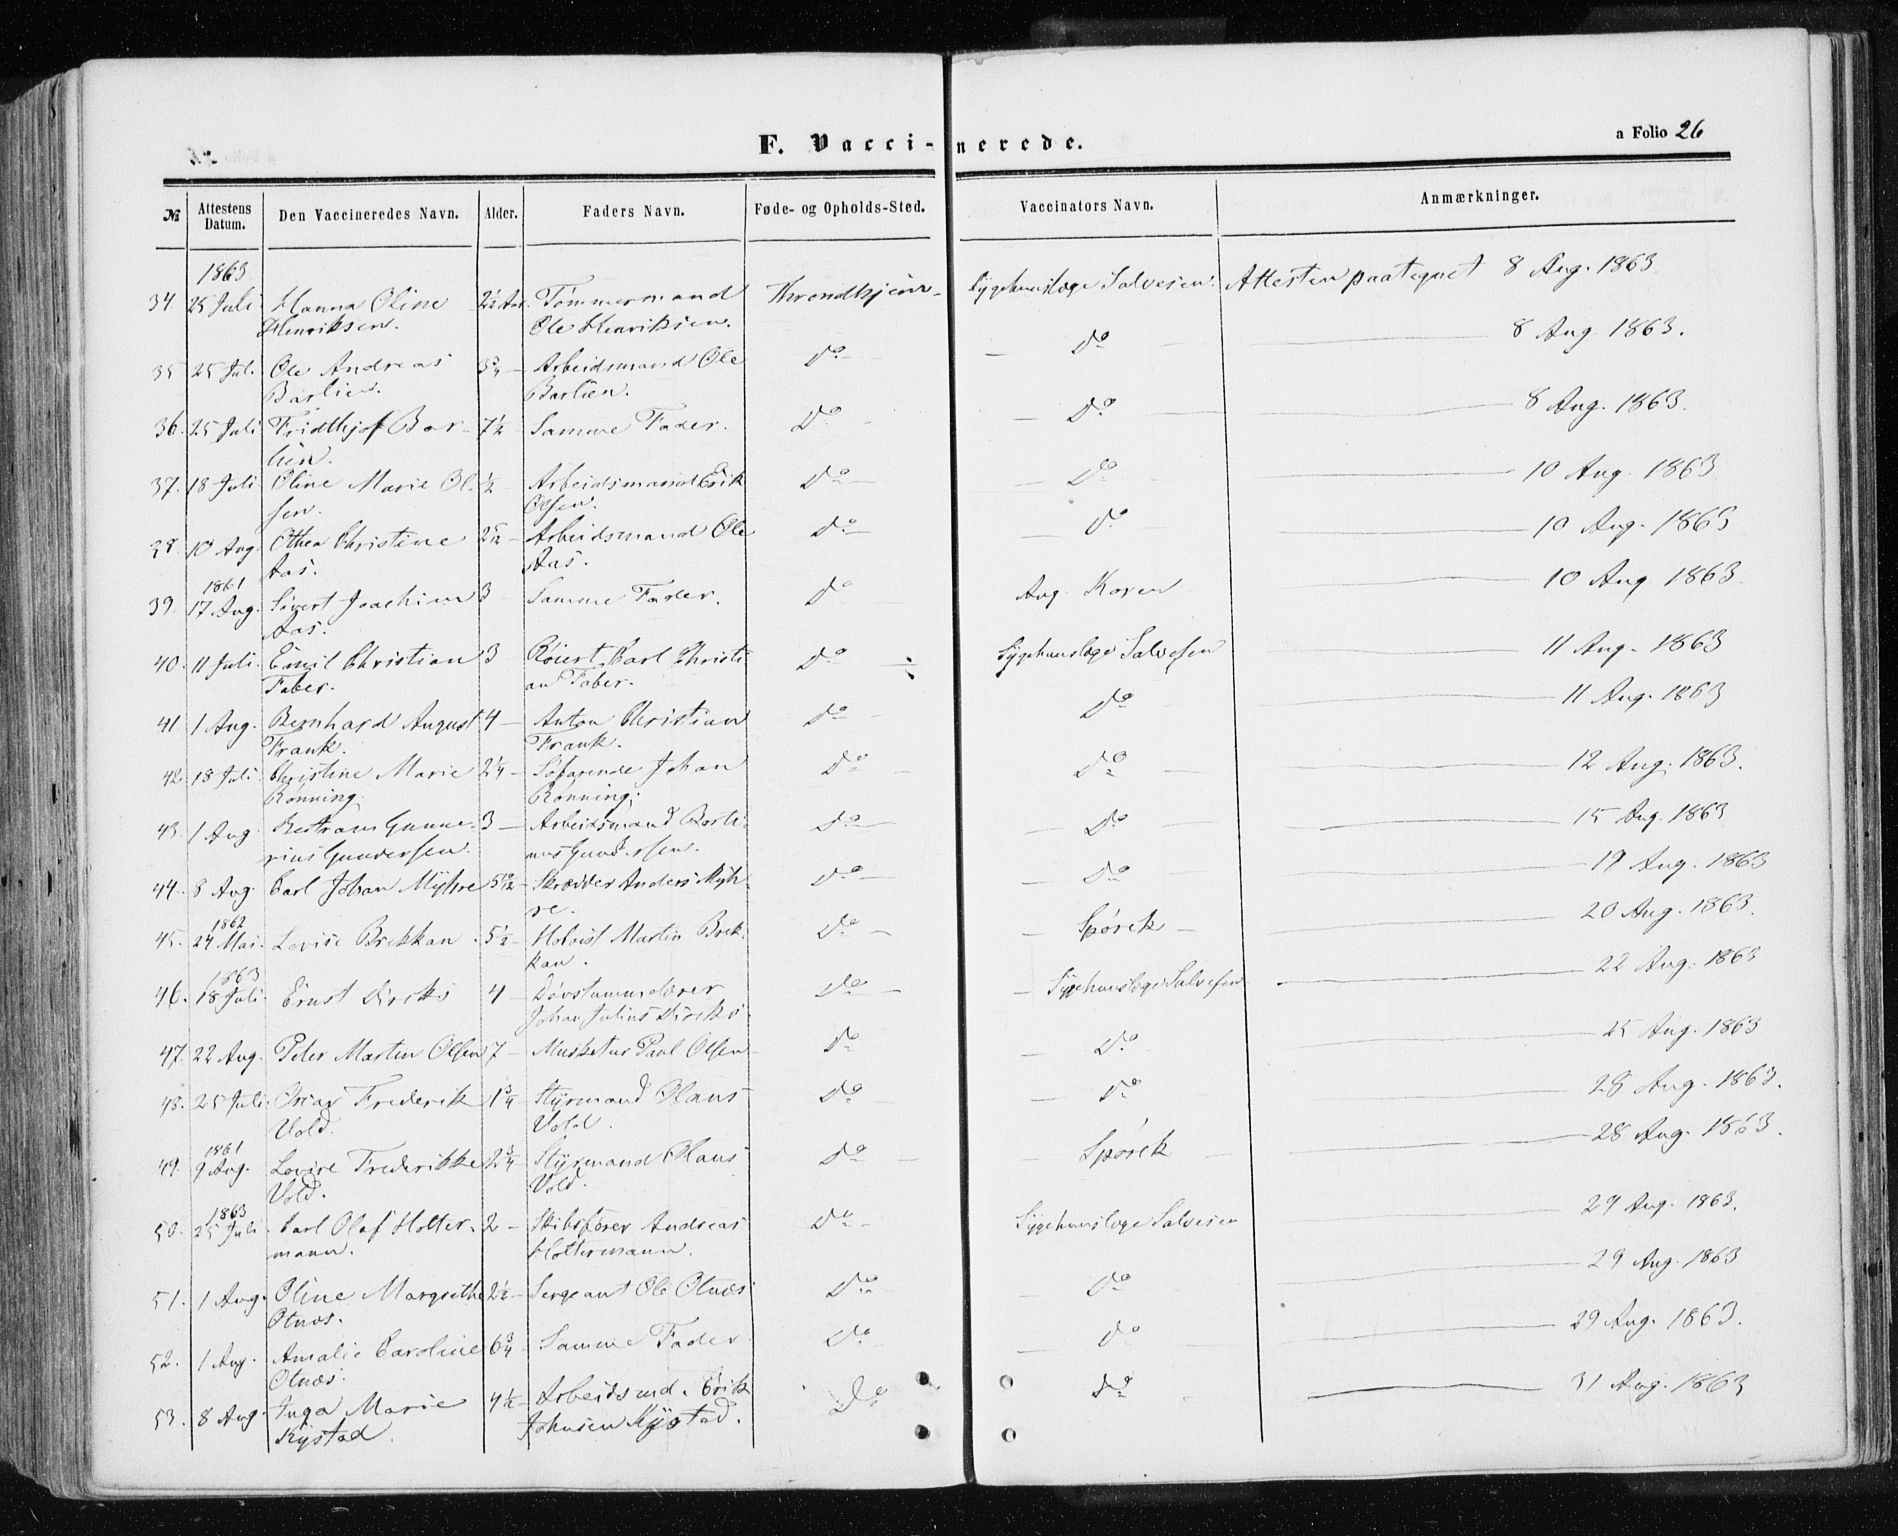 F. Vacci-nerede.
a Folio 26
№ Attestens Datum. Den Vaccineredes Navn. Alder. Faders Navn. Føde- og Opholds-Sted. Vaccinators Navn. Anmærkninger.
1863
34. 25 Juli Hanna Oline 2½ Aar. Tømmermand Throndhjem - Sygehuslæge Salvesen. Attesten paategnet 8 Aug. 1863
Henriksen. Ole Henriksen.
35 25 Jul. Ole Andreas 3¾ - Arbeidsmand Ole Do - Do - 8 Aug 1863.
Barlien. Barlien.
36. 25 Juli Fridthjof Bar- 7½ Samme Fader. Do - Do - 8 Aug. 1863.
lien.
37. 18 Juli Oline Marie Ol- ½ Arbeidsmand Erik Do - Do - 10 Aug. 1863
sen. Olsen.
38 10 Aug. Othea Christine Arbeidsmand Ole Do - Do - 10 Aug. 1863
Aas. Aas.
1861
39. 17 Aug. Sivert Joachim 3 Samme Fader. Do Aug. Koren 10 Aug 1863
Aas.
40. 11 Juli. Emil Christian 3 Carl Christi- Do Sygehuslæge Salvesen 11 Aug. 1863
Faber. an Faber.
41 1 Aug. Bernhard August 4 - Anton Christian Do - Do 11 Aug. 1863
Frank. Frank.
42. 18 Juli Christine Marie 2¼ - Søfarende Johan Do Do 12 Aug. 1863.
Rønning. Rønning.
43. 1 Aug. Gunne- 3 - Arbeidsmand Do - Do - 15 Aug. 1863
rius Gundersen. nus Gundersen.
44. 8 Aug. Carl Johan Myhre 5 10/12 - Skrædder Anders Myh- Do - Do - 19 Aug. 1863
re.
1862
45. 24 Mai. Lovise Brekkan. 5½ - Martin Brek- Do - Spørck - 20 Aug. 1863.
kan.
1863
46. 18 Juli. Ernst Dircks 4 - Døvstummelærer Do - Sygehuslæge Salvesen - 22 Aug. 1863
Johan Julius Dircks.
47. 22 Aug. Peter Martin Olsen 7 - Musketer Paul Olsen - Do Do - 25 Aug. 1863
48. 25 Juli Oscar Frederik 1¾ Styrmand Olaus Do - Do - 28 Aug. 1863.
Vold. Vold.
1861
49. 9 Aug. Lovise Frederikke 2¾ - Styrmand Olaus Do - Spørck - 28 Aug. 1863.
Vold. Vold.
1863
50. 25 Juli Carl Olaf Holter- 2 - Skibsfører Andreas Do - Sygehuslæge Salvesen 29 Aug. 1863.
mann. Holtermann.
51. 1 Aug. Oline Margrethe 2½ - Sergeant Ole Otnæs Do - Do - 29 Aug. 1863
Otnæs.
52. 1 Aug. Amalie Caroline 6¾ - Samme Fader Do - Do 29 Aug. 1863.
Otnæs.
53. 8 Aug. Inga Marie 4½ - Arbeidsmd. Erik Do Do 31 Aug. 1863
Kystad. Johnsen Kystad.